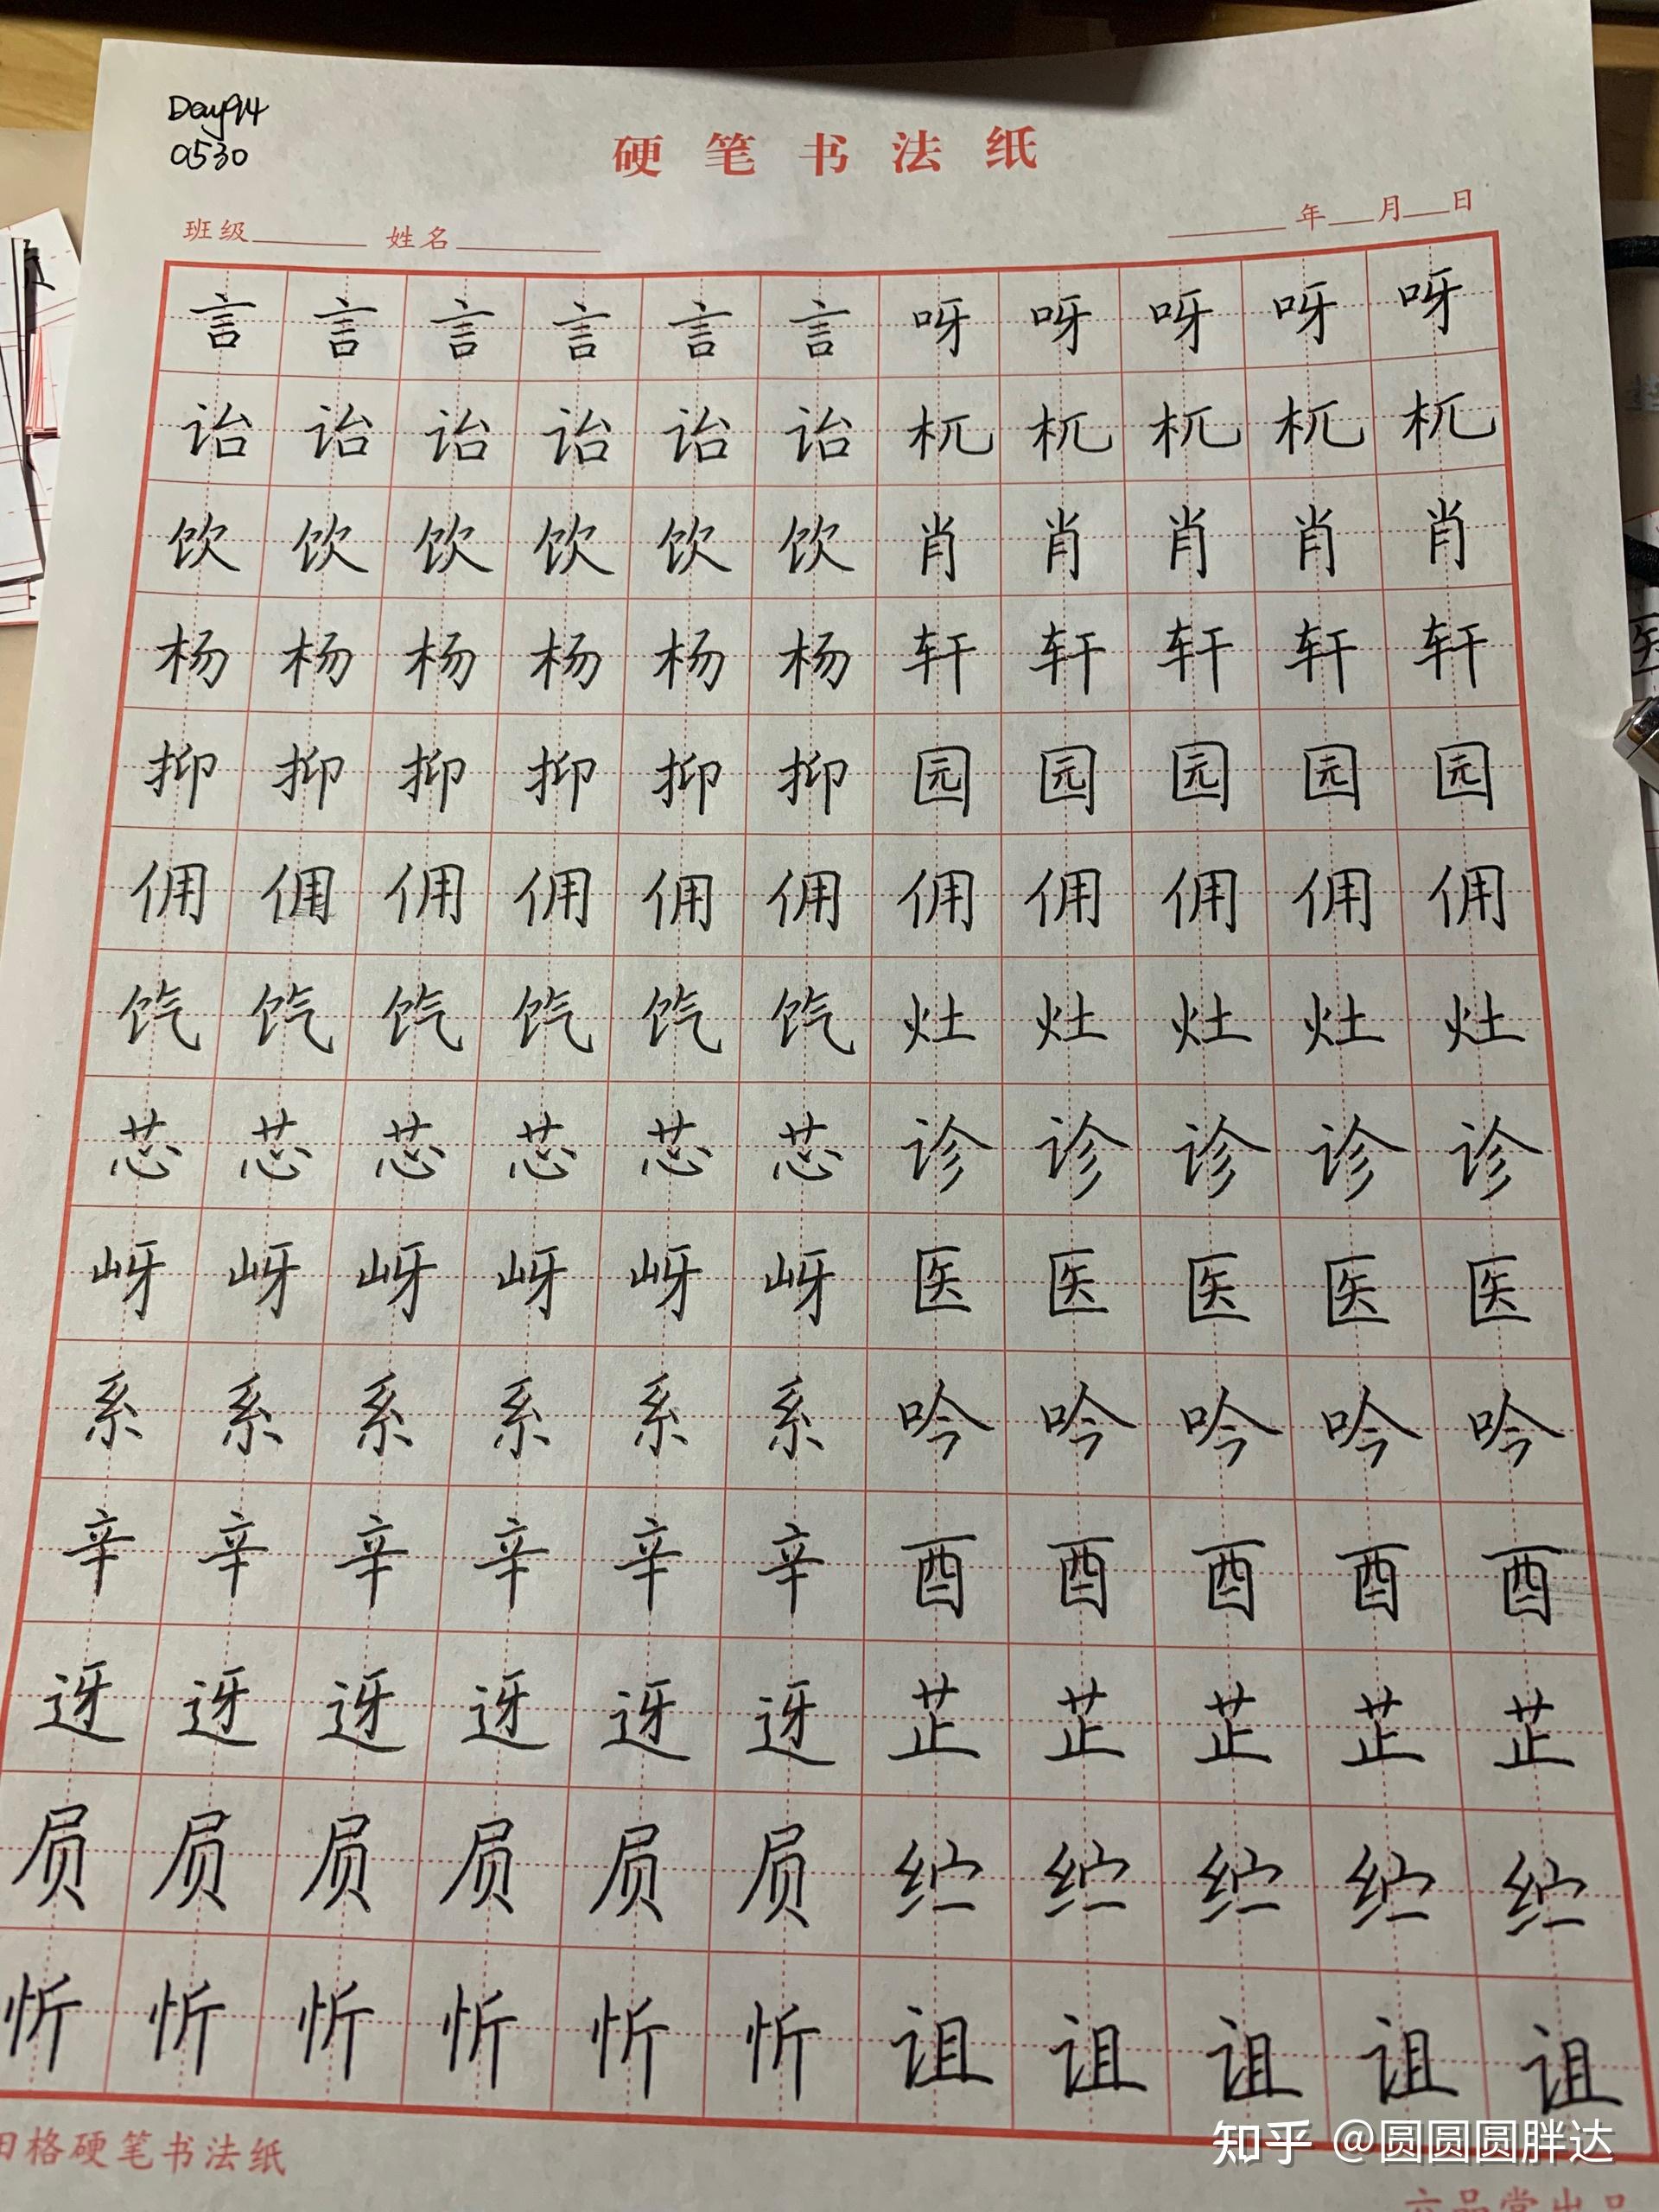 Day94
0530
硬笔书法纸
班级 姓名 年 月 日
言言言言言言呀呀呀呀呀
诒诒诒诒诒诒杌杌杌杌杌
饮饮饮饮饮饮肖肖肖肖肖
杨杨杨杨杨杨轩轩轩轩轩
抑抑抑抑抑抑园园园园园
佣佣佣佣佣佣佣佣佣佣佣
饩饩饩饩饩饩灶灶灶灶灶
芯芯芯芯芯芯诊诊诊诊诊
岈岈岈岈岈岈医医医医医
系系系系系系吟吟吟吟吟
辛辛辛辛辛辛酉酉酉酉酉
迓迓迓迓迓迓芷芷芷芷芷
屃屃屃屃屃屃纻纻纻纻纻
忻忻忻忻忻忻诅诅诅诅诅
田格硬笔书法纸
六品堂出品
知乎 @圆圆圆胖达